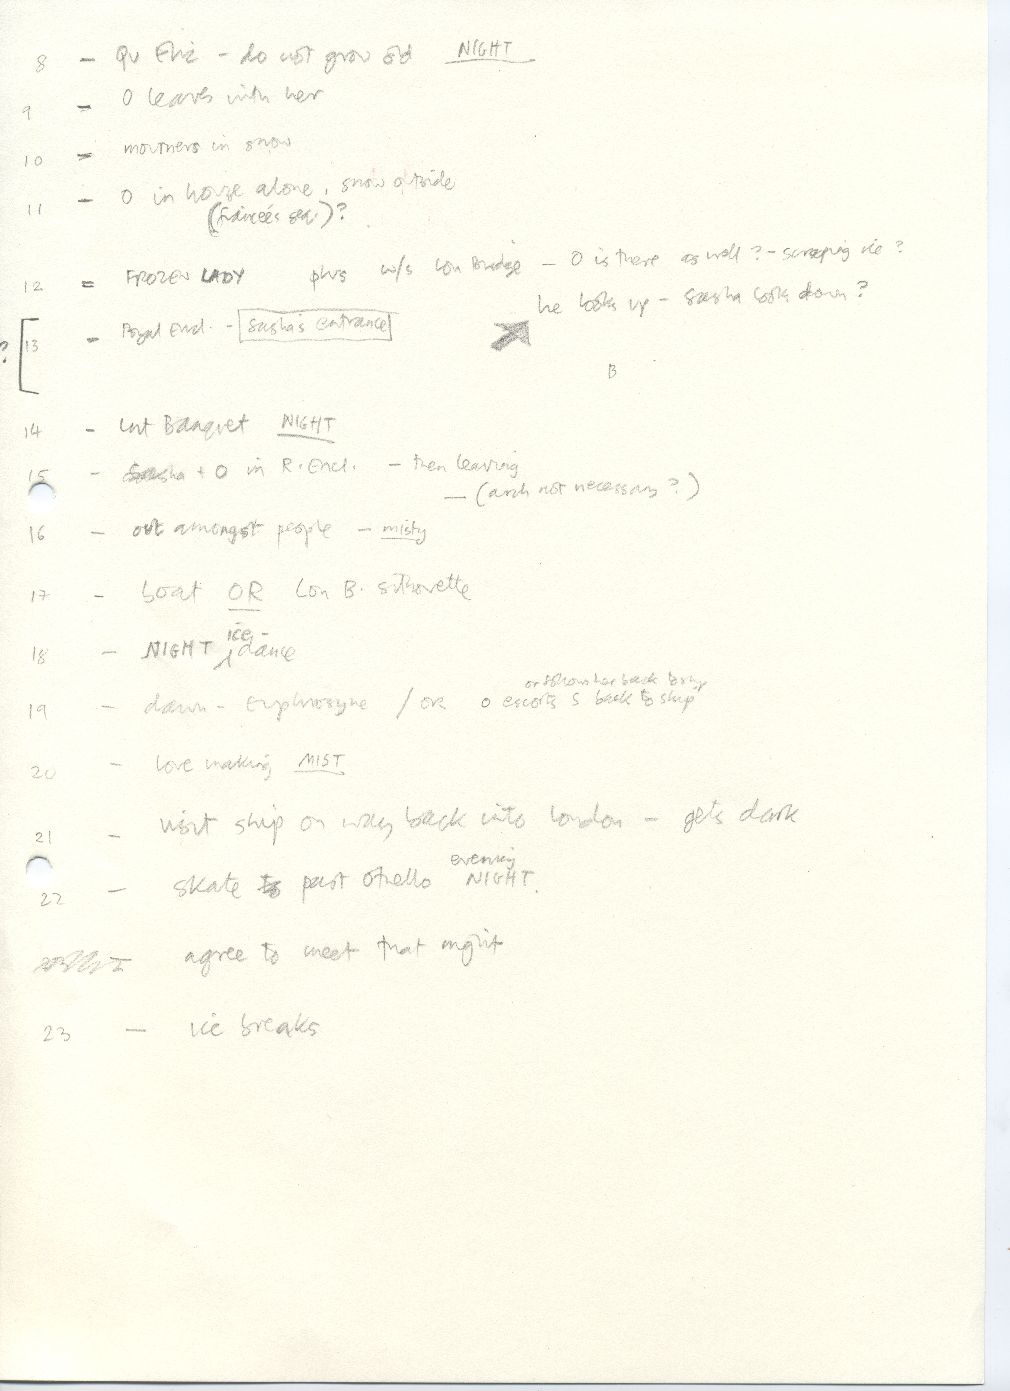 8 - Qu Eliz - do not grow old NIGHT
9 - O leaves with her
10 - mourners in snow
11 - O in house alone, snow outside
(fiancées seq.)?
12 - FROZEN LADY plus w/s Lon Bridge - O is there as well? - scraping ice?
he looks up - Sasha looks down?
? [ 13 - Royal Encl. - Sasha's entrance
B
14 - Int Banquet NIGHT
15 - Sasha + O in R. Encl. - then leaving
- (arch not necessary?)
16 - out amongst people - misty
17 - boat OR Lon B. silhouette
ice-
18 - NIGHT dance
back to ship
19 - dawn - Euphrosyne / OR O escorts S back to ship
20 - love making MIST
21 - visit ship on way back into London - gets dark
evening
22 - skate past Othello NIGHT.
agree to meet that night
23 - ice breaks